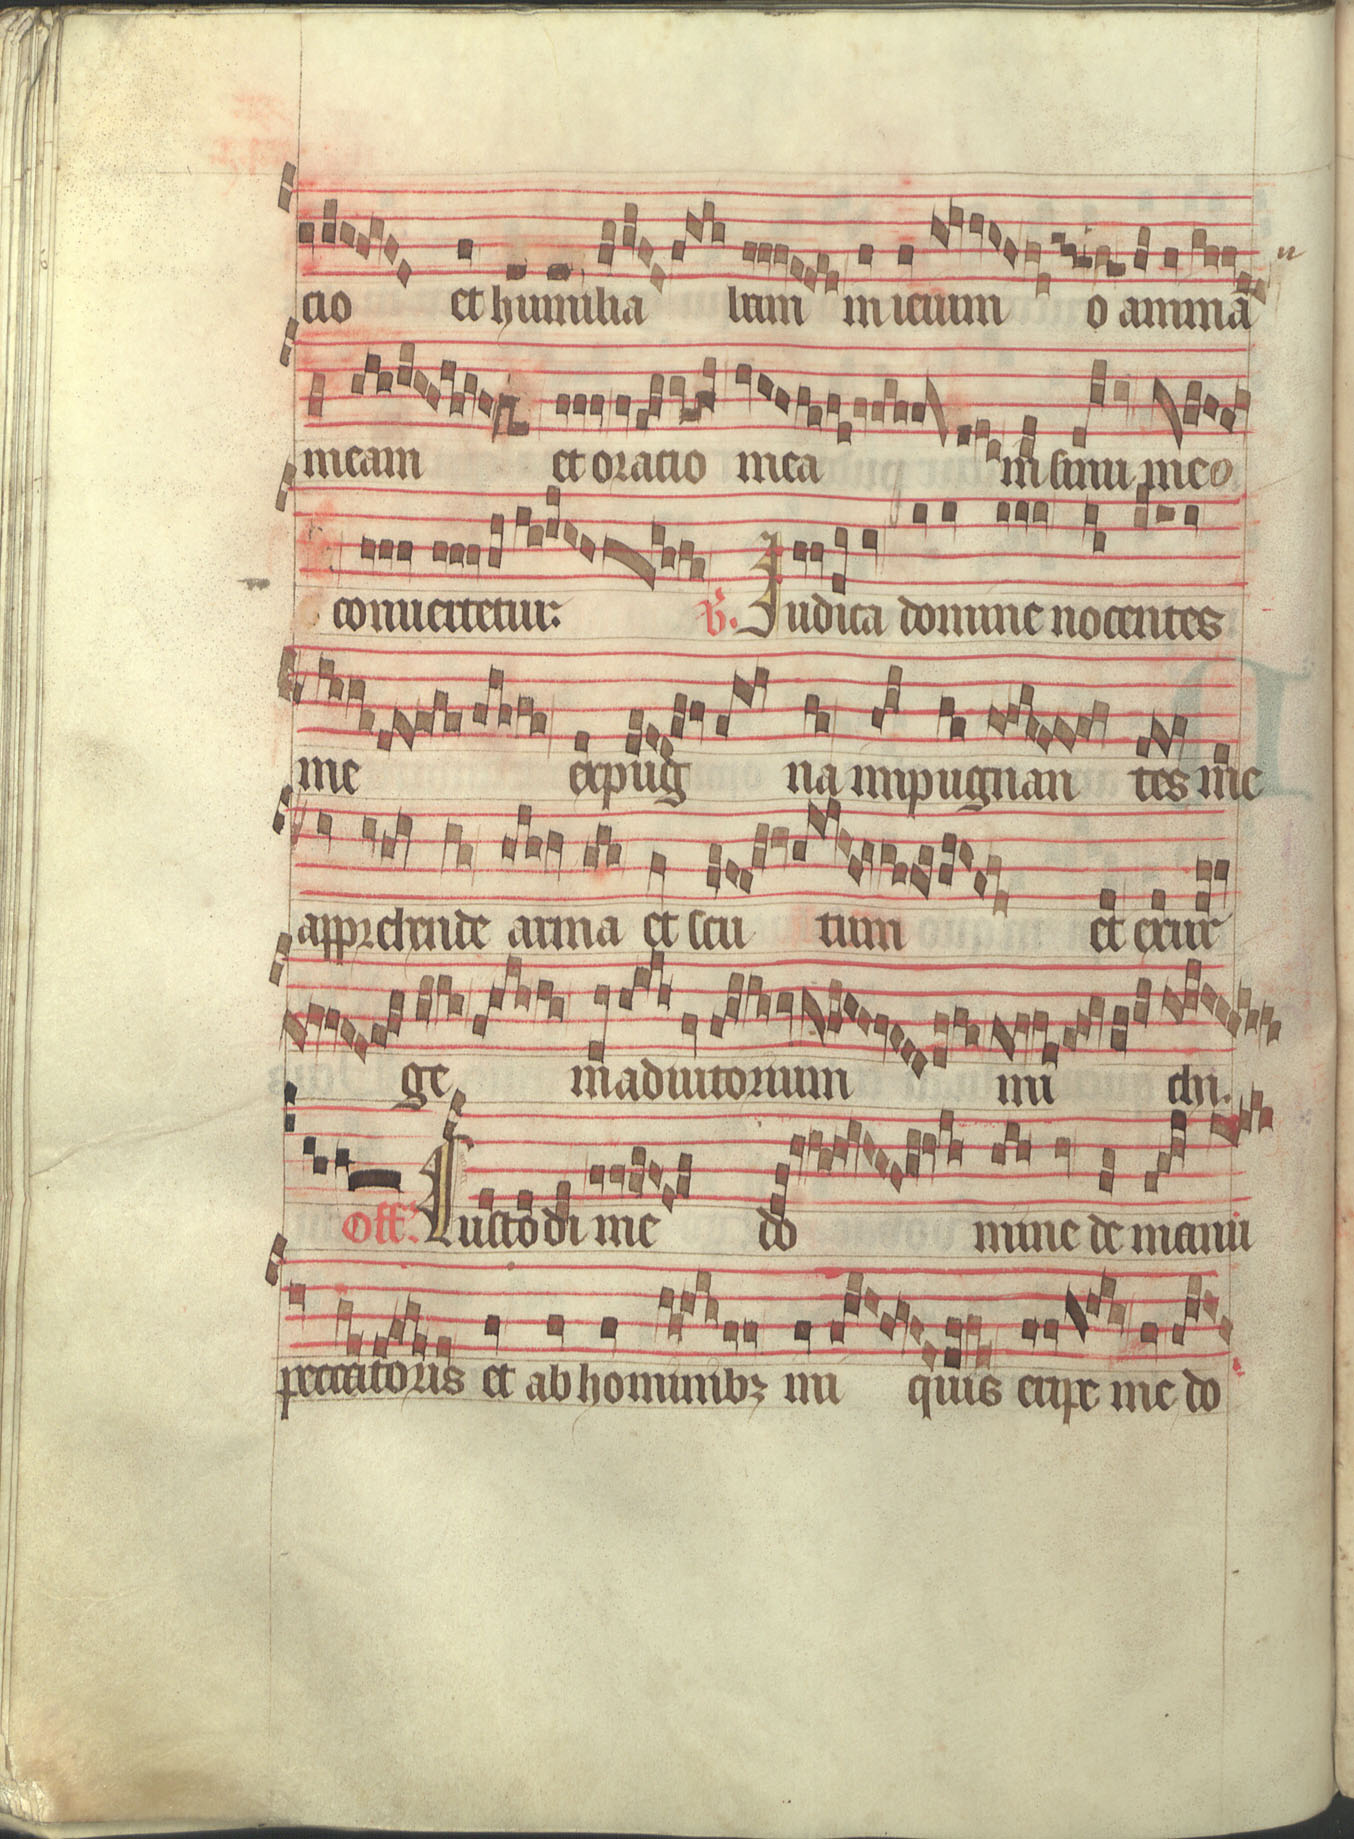 cio et humilia bam in ieiuni o animã
meam et oratio mea in sinu meo
conuertetur.
V. Iudica domine nocentes
me expug na inpugnan tes me
apprehende arma et scu tum et exur
ge in adiutorium mi chi.
Off. Custodi me do mine de manu
peccatoris et ab hominibꝫ ini quis eripe me do